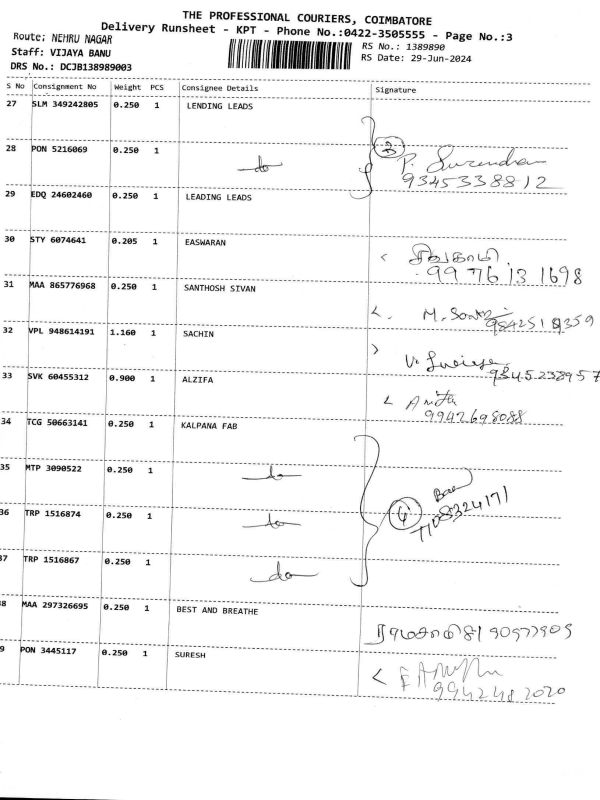 THE PROFESSIONAL COURIERS, COIMBATORE
Delivery Runsheet - KPT - Phone No.:0422-3505555 - Page No.:3
Route: NEHRU NAGAR
RS No.: 1389890
Staff: VIJAYA BANU
RS Date: 29-Jun-2024
DRS No.: DCJB138989003
S No Consignment No Weight PCS Consignee Details Signature
27 SLM 349242805 0.250 1 LENDING LEADS
28 PON 5216069 0.250 1 do
3 P. Surendran
9345338812
29 EDQ 24602460 0.250 1 LEADING LEADS
30 STY 6074641 0.205 1 EASWARAN
99 76 13 1698
31 MAA 865776968 0.250 1 SANTHOSH SIVAN
M.
32 VPL 948614191 1.160 1 SACHIN
V.
9345238957
33 SVK 60455312 0.900 1 ALZIFA
Anitha
9942698088
34 TCG 50663141 0.250 1 KALPANA FAB
35 MTP 3090522 0.250 1 do
4
7708324171
36 TRP 1516874 0.250 1 do
37 TRP 1516867 0.250 1 do
38 MAA 297326695 0.250 1 BEST AND BREATHE
39 PON 3445117 0.250 1 SURESH
9942482020